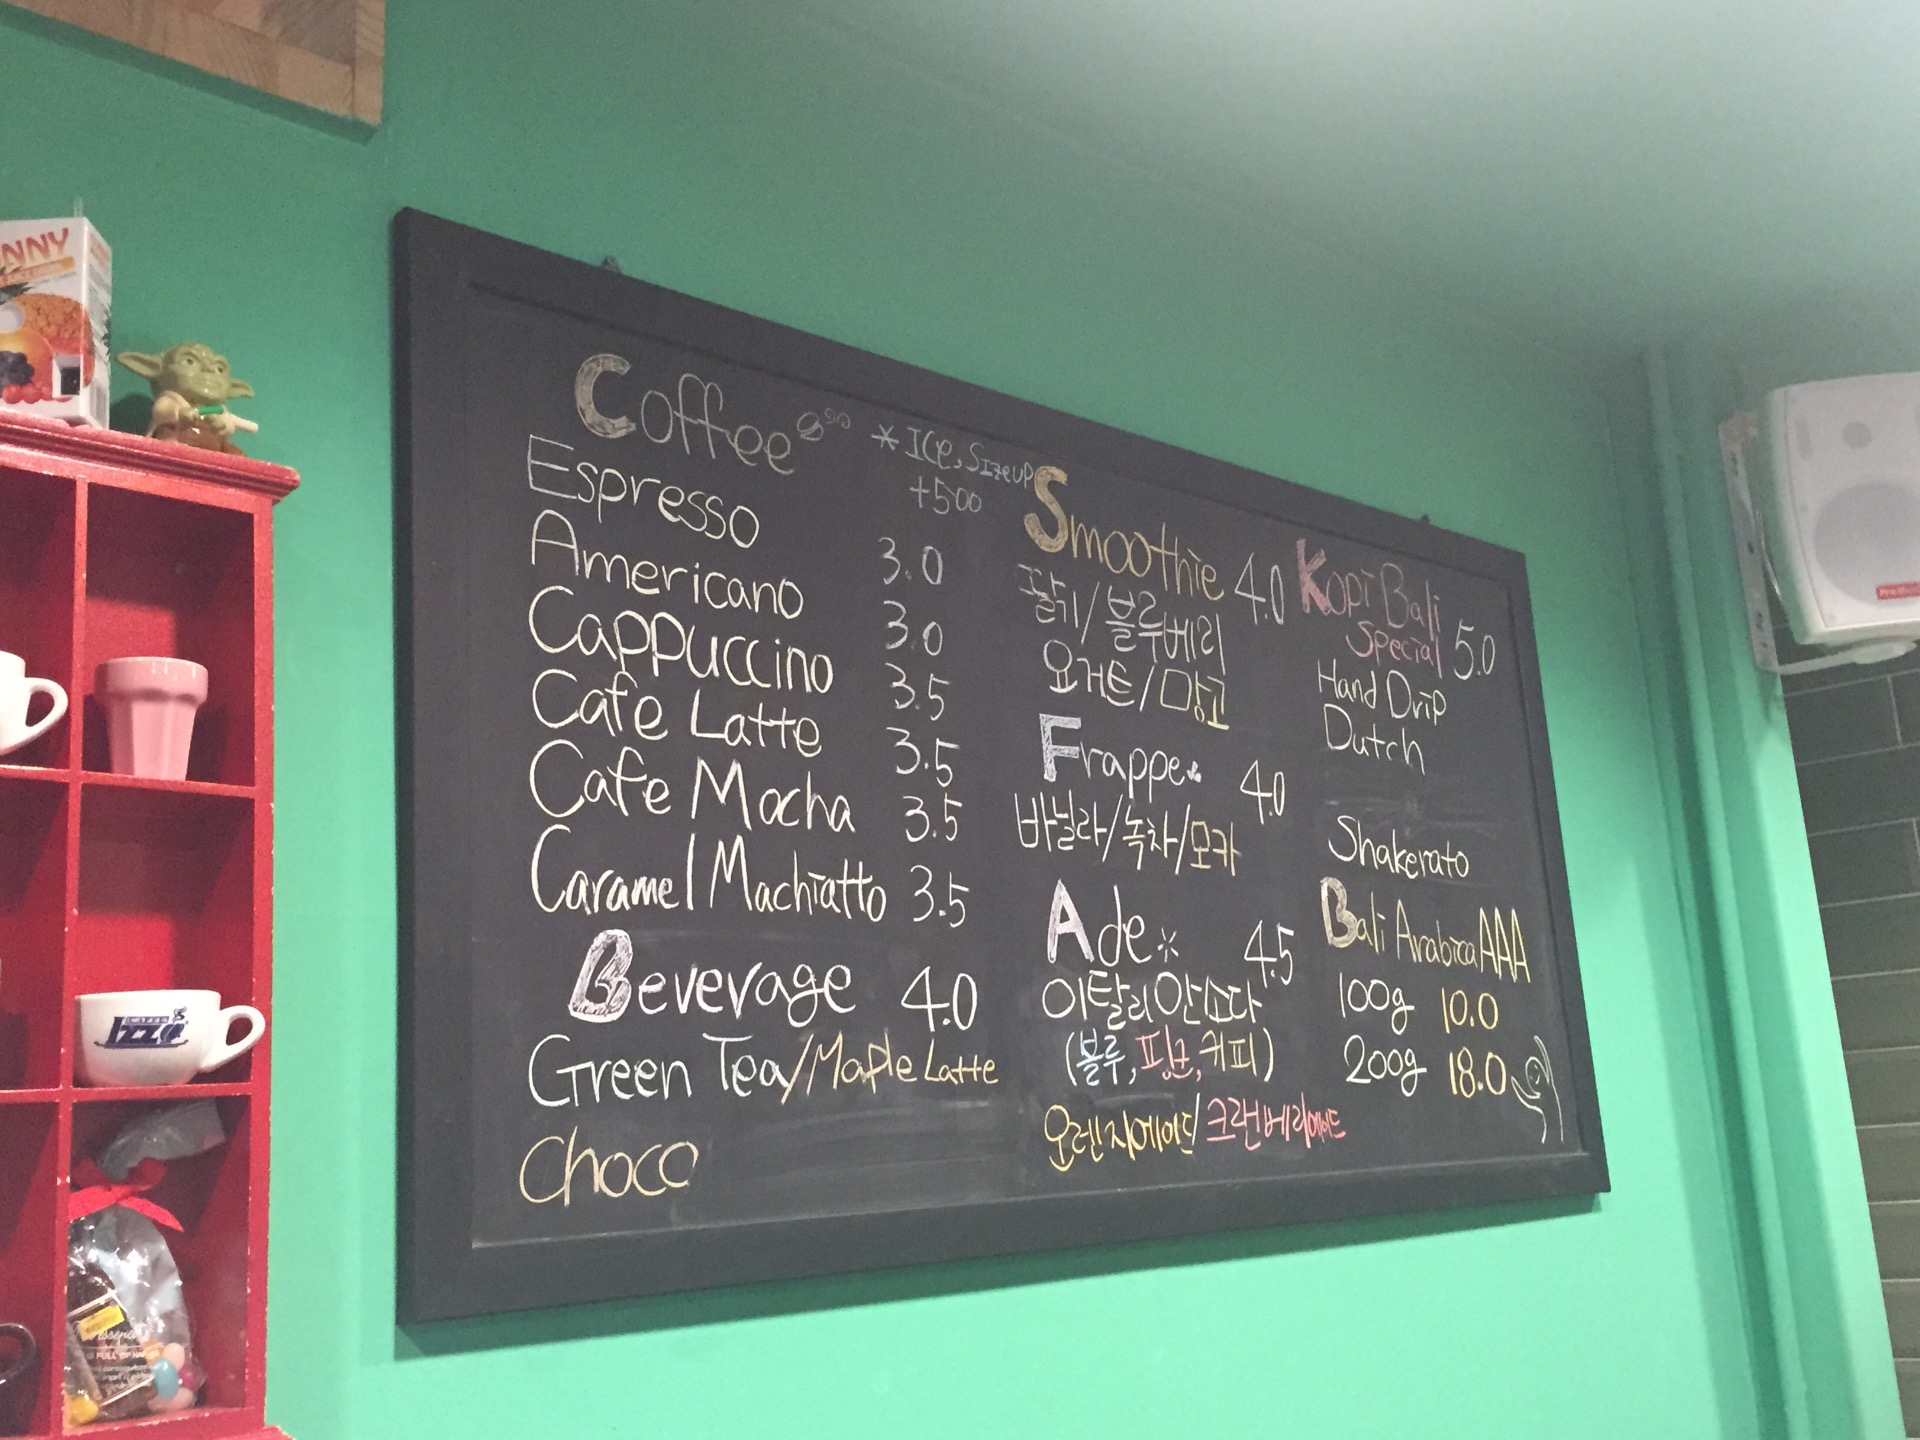 Coffee
* ICe, Sizeup
+500
Espresso 3.0
Americano 3.0
Cappuccino 3.5
Cafe Latte 3.5
Cafe Mocha 3.5
Caramel Machiatto 3.5
Beverage 4.0
Green Tea/Maple Latte
Choco
Smoothie 4.0
딸기/블루베리
요거트/망고
Frappe 4.0
바닐라/녹차/모카
Ade* 4.5
이탈리안소다
(블루,핑크,커피)
오렌지에이드/크랜베리에이드
Kopi Bali
Special 5.0
Hand Drip
Dutch
Shakerato
Bali Arabica AAA
100g 10.0
200g 18.0
NNY
CAFFE
IZZO